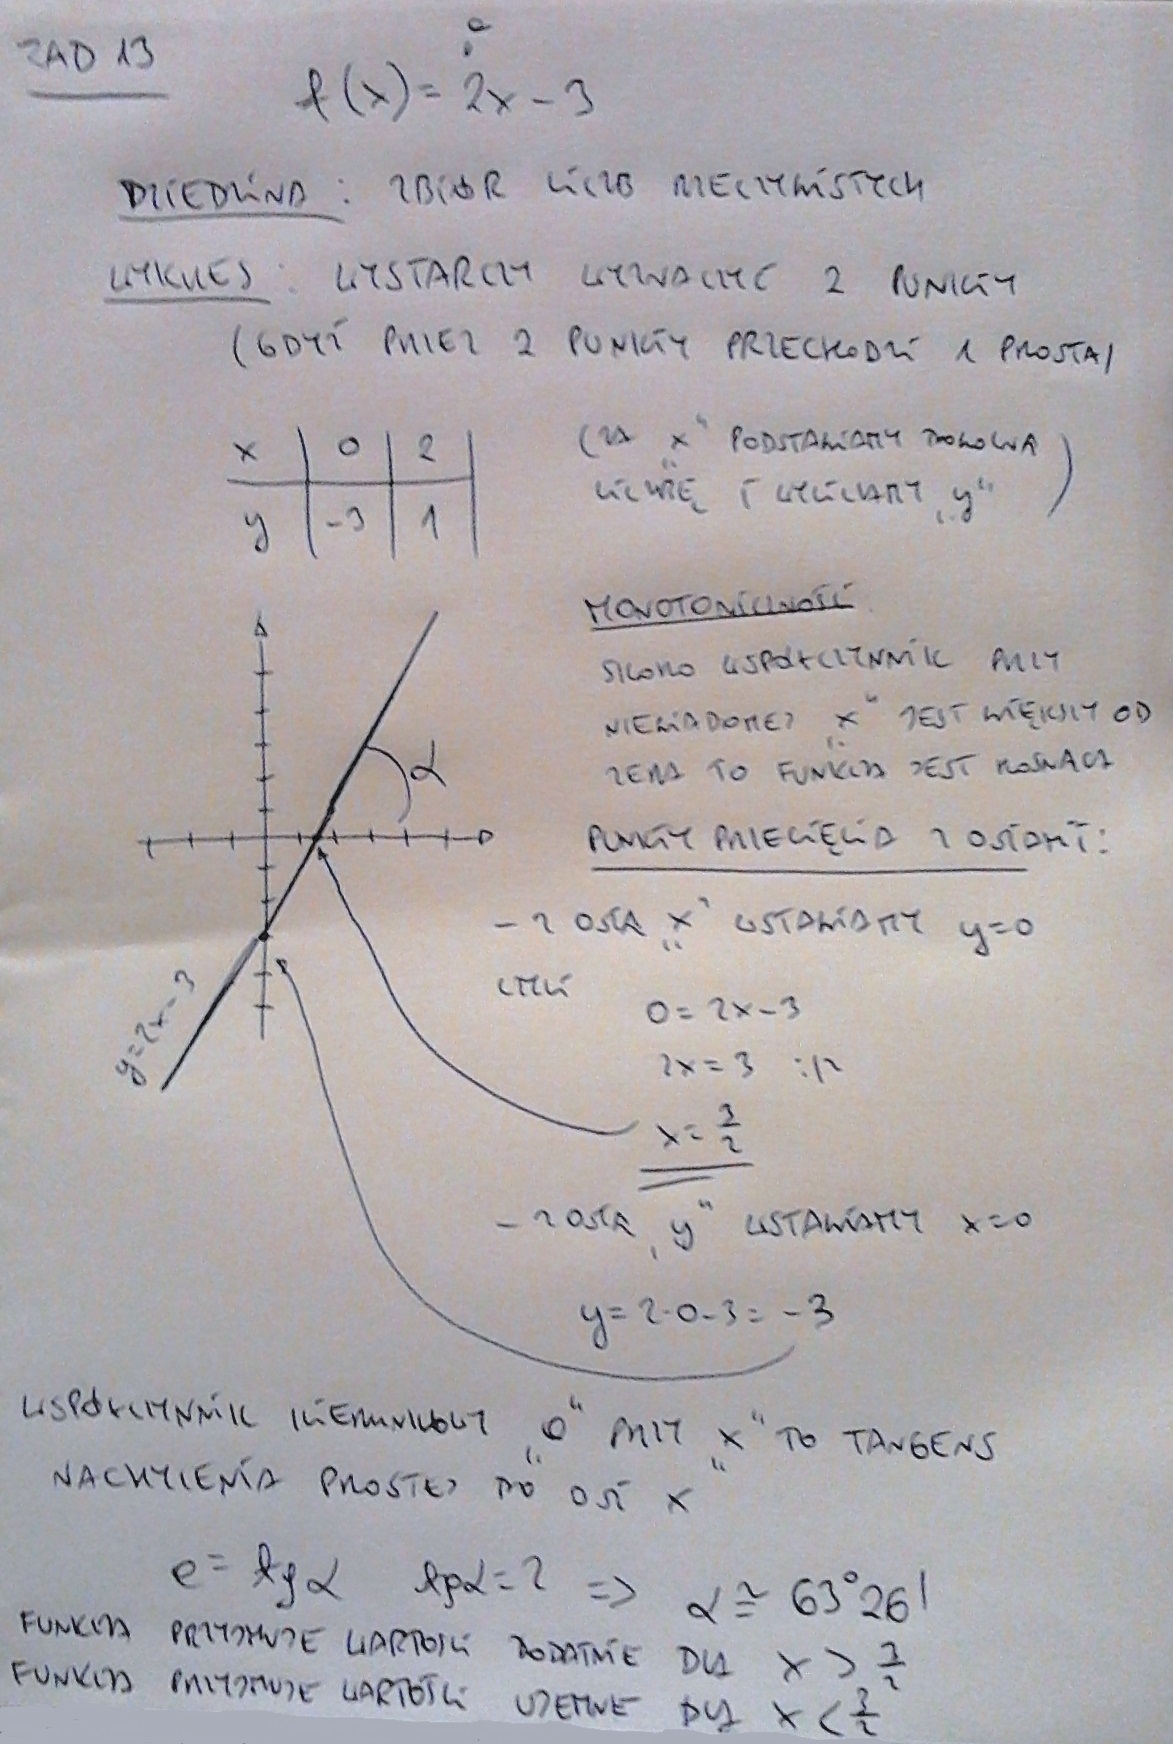 ZAD 13
a
f(x) = 2x - 3
DZIEDZINA : ZBIÓR LICZB RZECZYWISTYCH
WYKRES : WYSTARCZY WYZNACZYĆ 2 PUNKTY
(GDYŻ PRZEZ 2 PUNKTY PRZECHODZI 1 PROSTA)
x | 0 | 2
y | -3 | 1
(ZA „x" PODSTAWIAMY DOWOLNĄ
LICZBĘ I WYLICZAMY „y")
MONOTONICZNOŚĆ
SKORO WSPÓŁCZYNNIK PRZY
NIEWIADOMEJ „x" JEST WIĘKSZY OD
ZERA TO FUNKCJA JEST ROSNĄCA
α
PUNKTY PRZECIĘCIA Z OSIAMI:
- Z OSIĄ „x" WSTAWIAMY y=0
CZYLI
0 = 2x - 3
2x = 3 :/2
x = 3/2
y=2x-3
- Z OSIĄ „y" WSTAWIAMY x=0
y = 2·0-3 = -3
WSPÓŁCZYNNIK KIERUNKOWY „a" PRZY „x" TO TANGENS
NACHYLENIA PROSTEJ DO OSI „x"
a = tgα tgα = 2 => α ≅ 63°26'
FUNKCJA PRZYJMUJE WARTOŚCI DODATNIE DLA x > 3/2
FUNKCJA PRZYJMUJE WARTOŚCI UJEMNE DLA x < 3/2